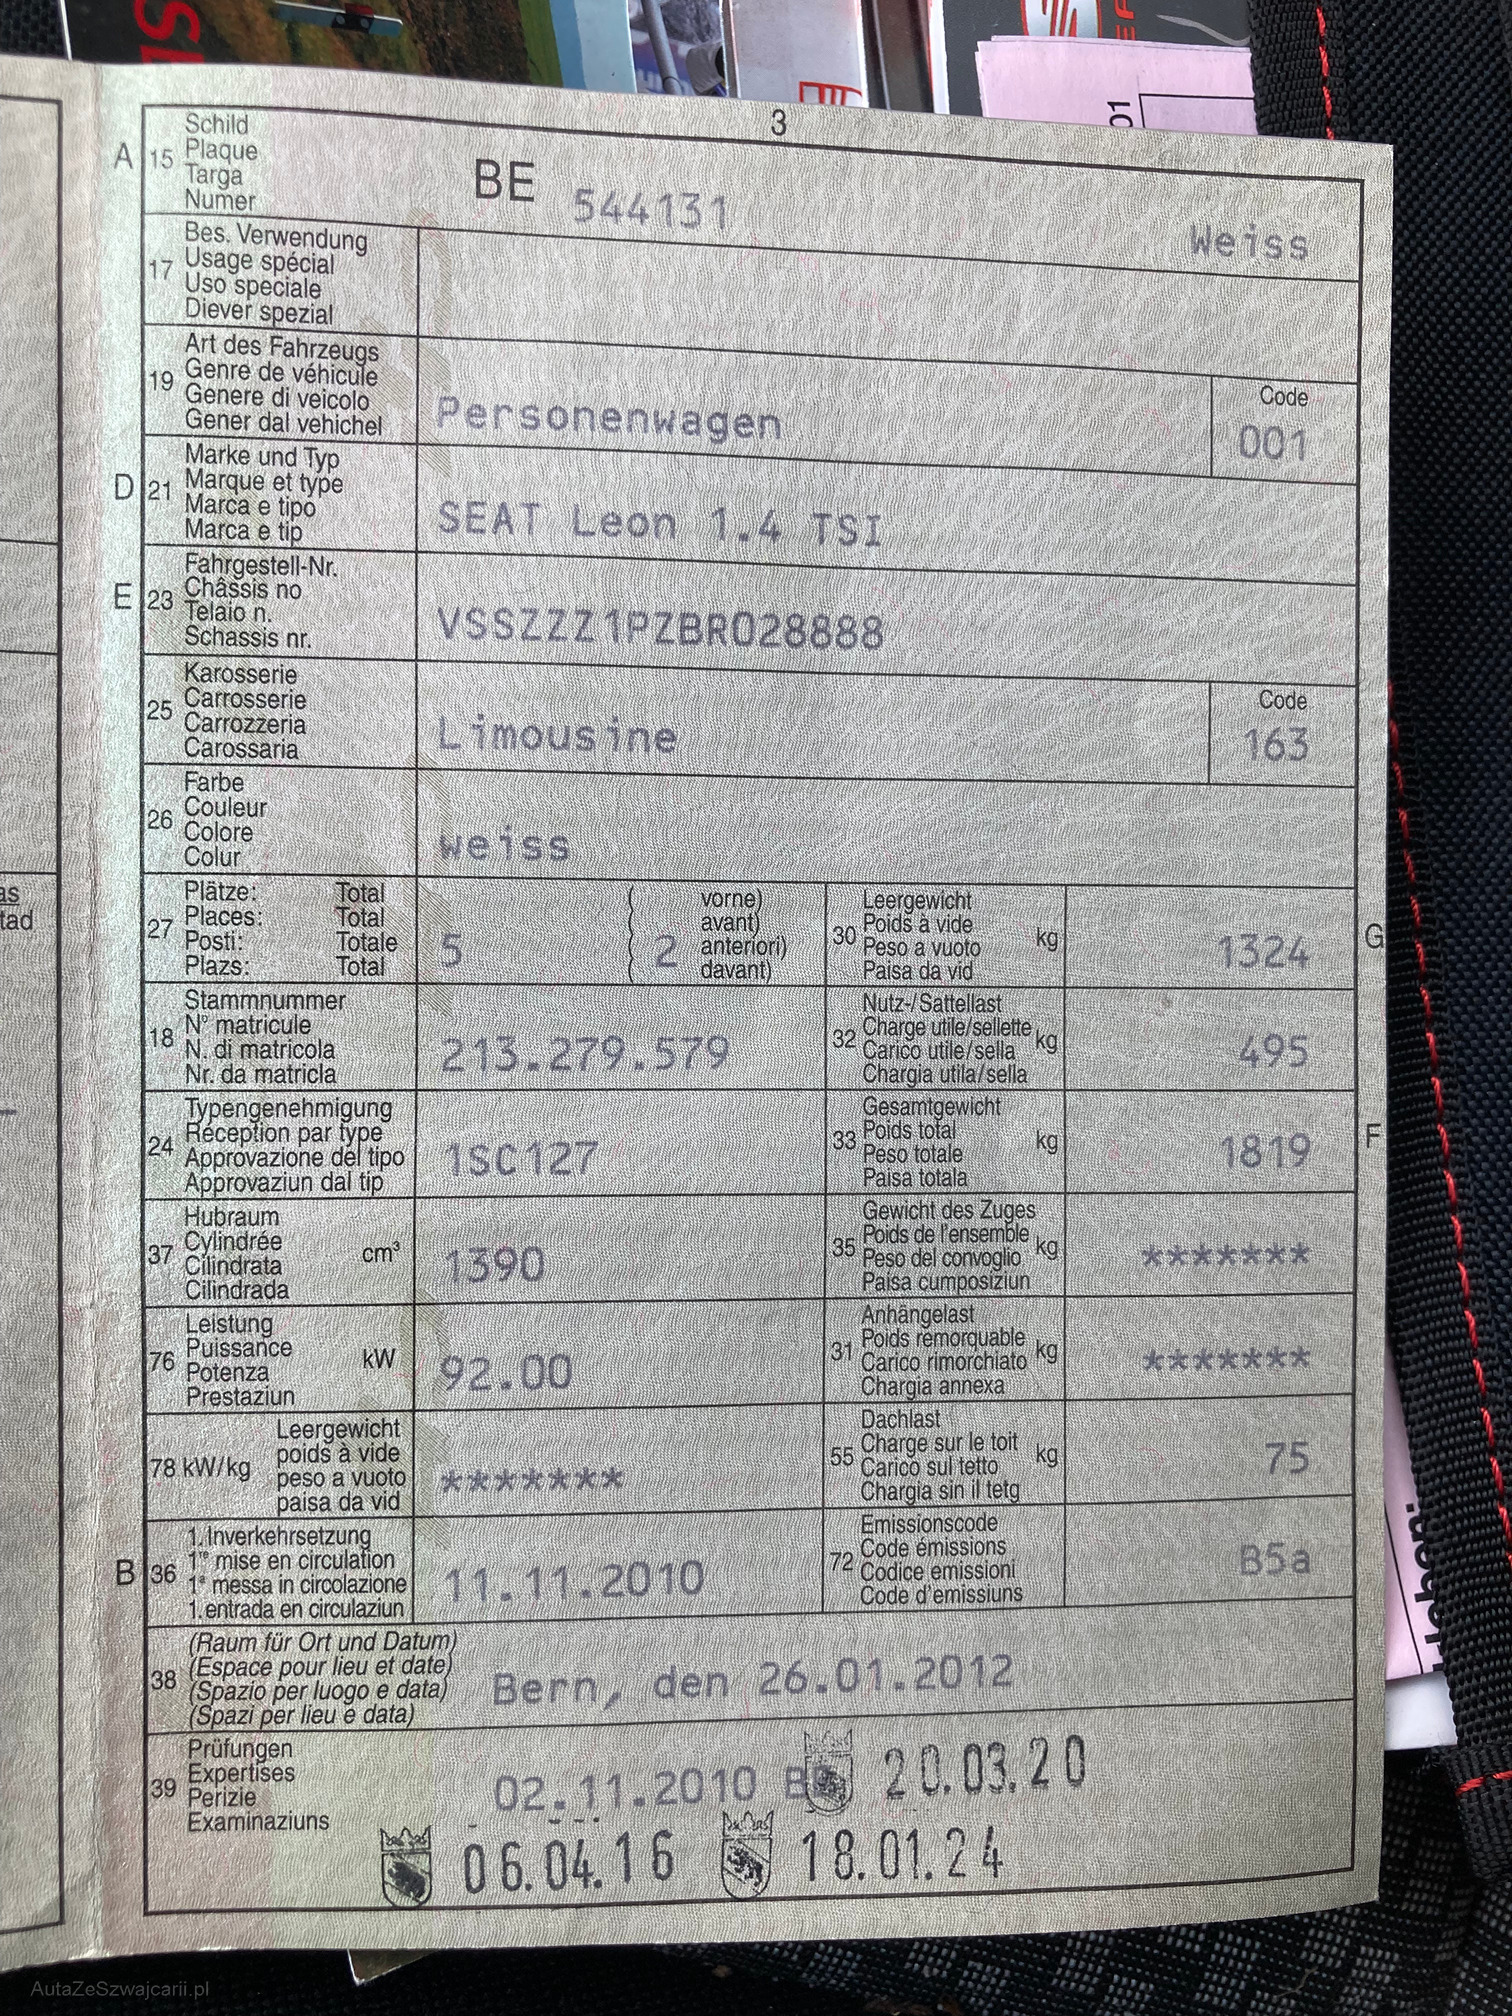 3
A 15 Schild
Plaque
Targa
Numer
BE 544131 Weiss
17 Bes. Verwendung
Usage spécial
Uso speciale
Diever spezial
19 Art des Fahrzeugs
Genre de véhicule
Genere di veicolo
Gener dal vehichel
Personenwagen
Code
001
D 21 Marke und Typ
Marque et type
Marca e tipo
Marca e tip
SEAT Leon 1.4 TSI
E 23 Fahrgestell-Nr.
Châssis no
Telaio n.
Schassis nr.
VSSZZZ1PZBR028888
25 Karosserie
Carrosserie
Carrozzeria
Carossaria
Limousine
Code
163
26 Farbe
Couleur
Colore
Colur
weiss
27 Plätze: Total
Places: Total
Posti: Totale
Plazs: Total
5 ( 2 vorne)
avant)
anteriori)
davant)
30 Leergewicht
Poids à vide
Peso a vuoto
Paisa da vid
kg
1324
G
18 Stammnummer
N° matricule
N. di matricola
Nr. da matricla
213.279.579
32 Nutz-/Sattellast
Charge utile/sellette
Carico utile/sella
Chargia utila/sella
kg
495
24 Typengenehmigung
Réception par type
Approvazione del tipo
Approvaziun dal tip
1SC127
33 Gesamtgewicht
Poids total
Peso totale
Paisa totala
kg
1819
F
37 Hubraum
Cylindrée
Cilindrata
Cilindrada
cm³
1390
35 Gewicht des Zuges
Poids de l'ensemble
Peso del convoglio
Paisa cumposiziun
kg
*******
76 Leistung
Puissance
Potenza
Prestaziun
kW
92.00
31 Anhängelast
Poids remorquable
Carico rimorchiato
Chargia annexa
kg
*******
78 kW/kg Leergewicht
poids à vide
peso a vuoto
paisa da vid
*******
55 Dachlast
Charge sur le toit
Carico sul tetto
Chargia sin il tetg
kg
75
B 36 1. Inverkehrsetzung
1re mise en circulation
1a messa in circolazione
1. entrada en circulaziun
11.11.2010
72 Emissionscode
Code émissions
Codice emissioni
Code d'emissiuns
B5a
38 (Raum für Ort und Datum)
(Espace pour lieu et date)
(Spazio per luogo e data)
(Spazi per lieu e data)
Bern, den 26.01.2012
39 Prüfungen
Expertises
Perizie
Examinaziuns
02.11.2010 20.03.20
06.04.16 18.01.24
AutaZeSzwajcarii.pl